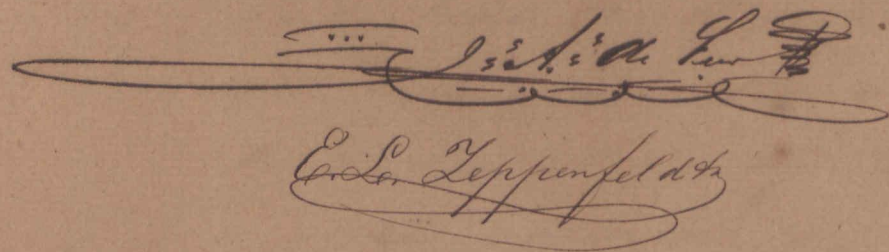 J. A. de
E. L. Zeppenfeldt